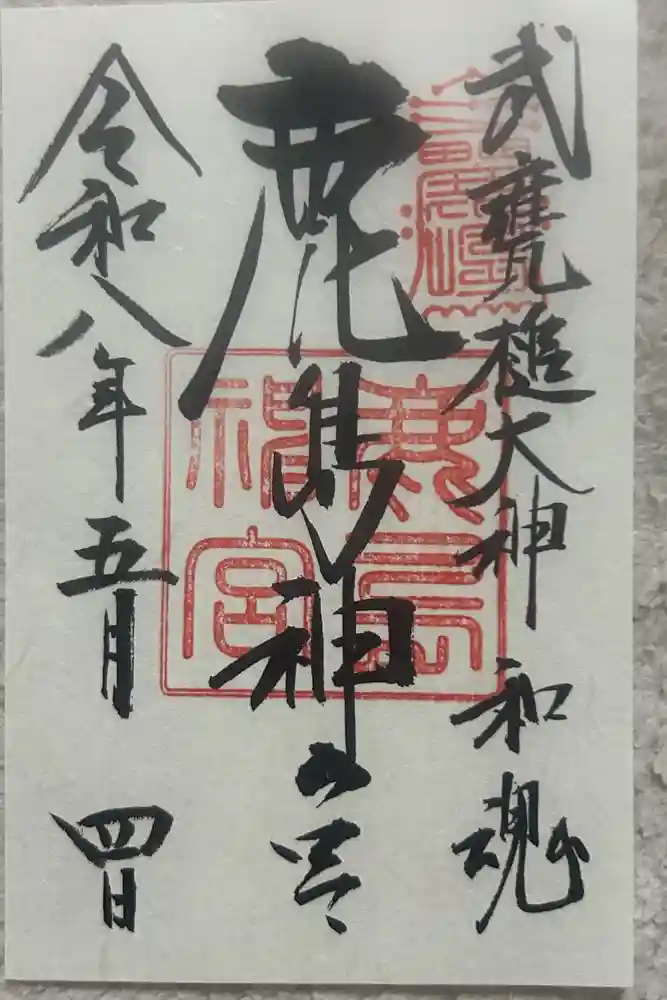 武甕槌大神 和魂
鹿島神宮
鹿島神宮
令和八年五月 四日